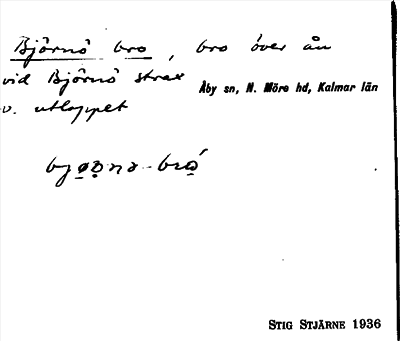 Björnö bro, bro över ån
vid Björnö strax
Åby sn, N. Möre hd, Kalmar län
v. utloppet
STIG STJÄRNE 1936